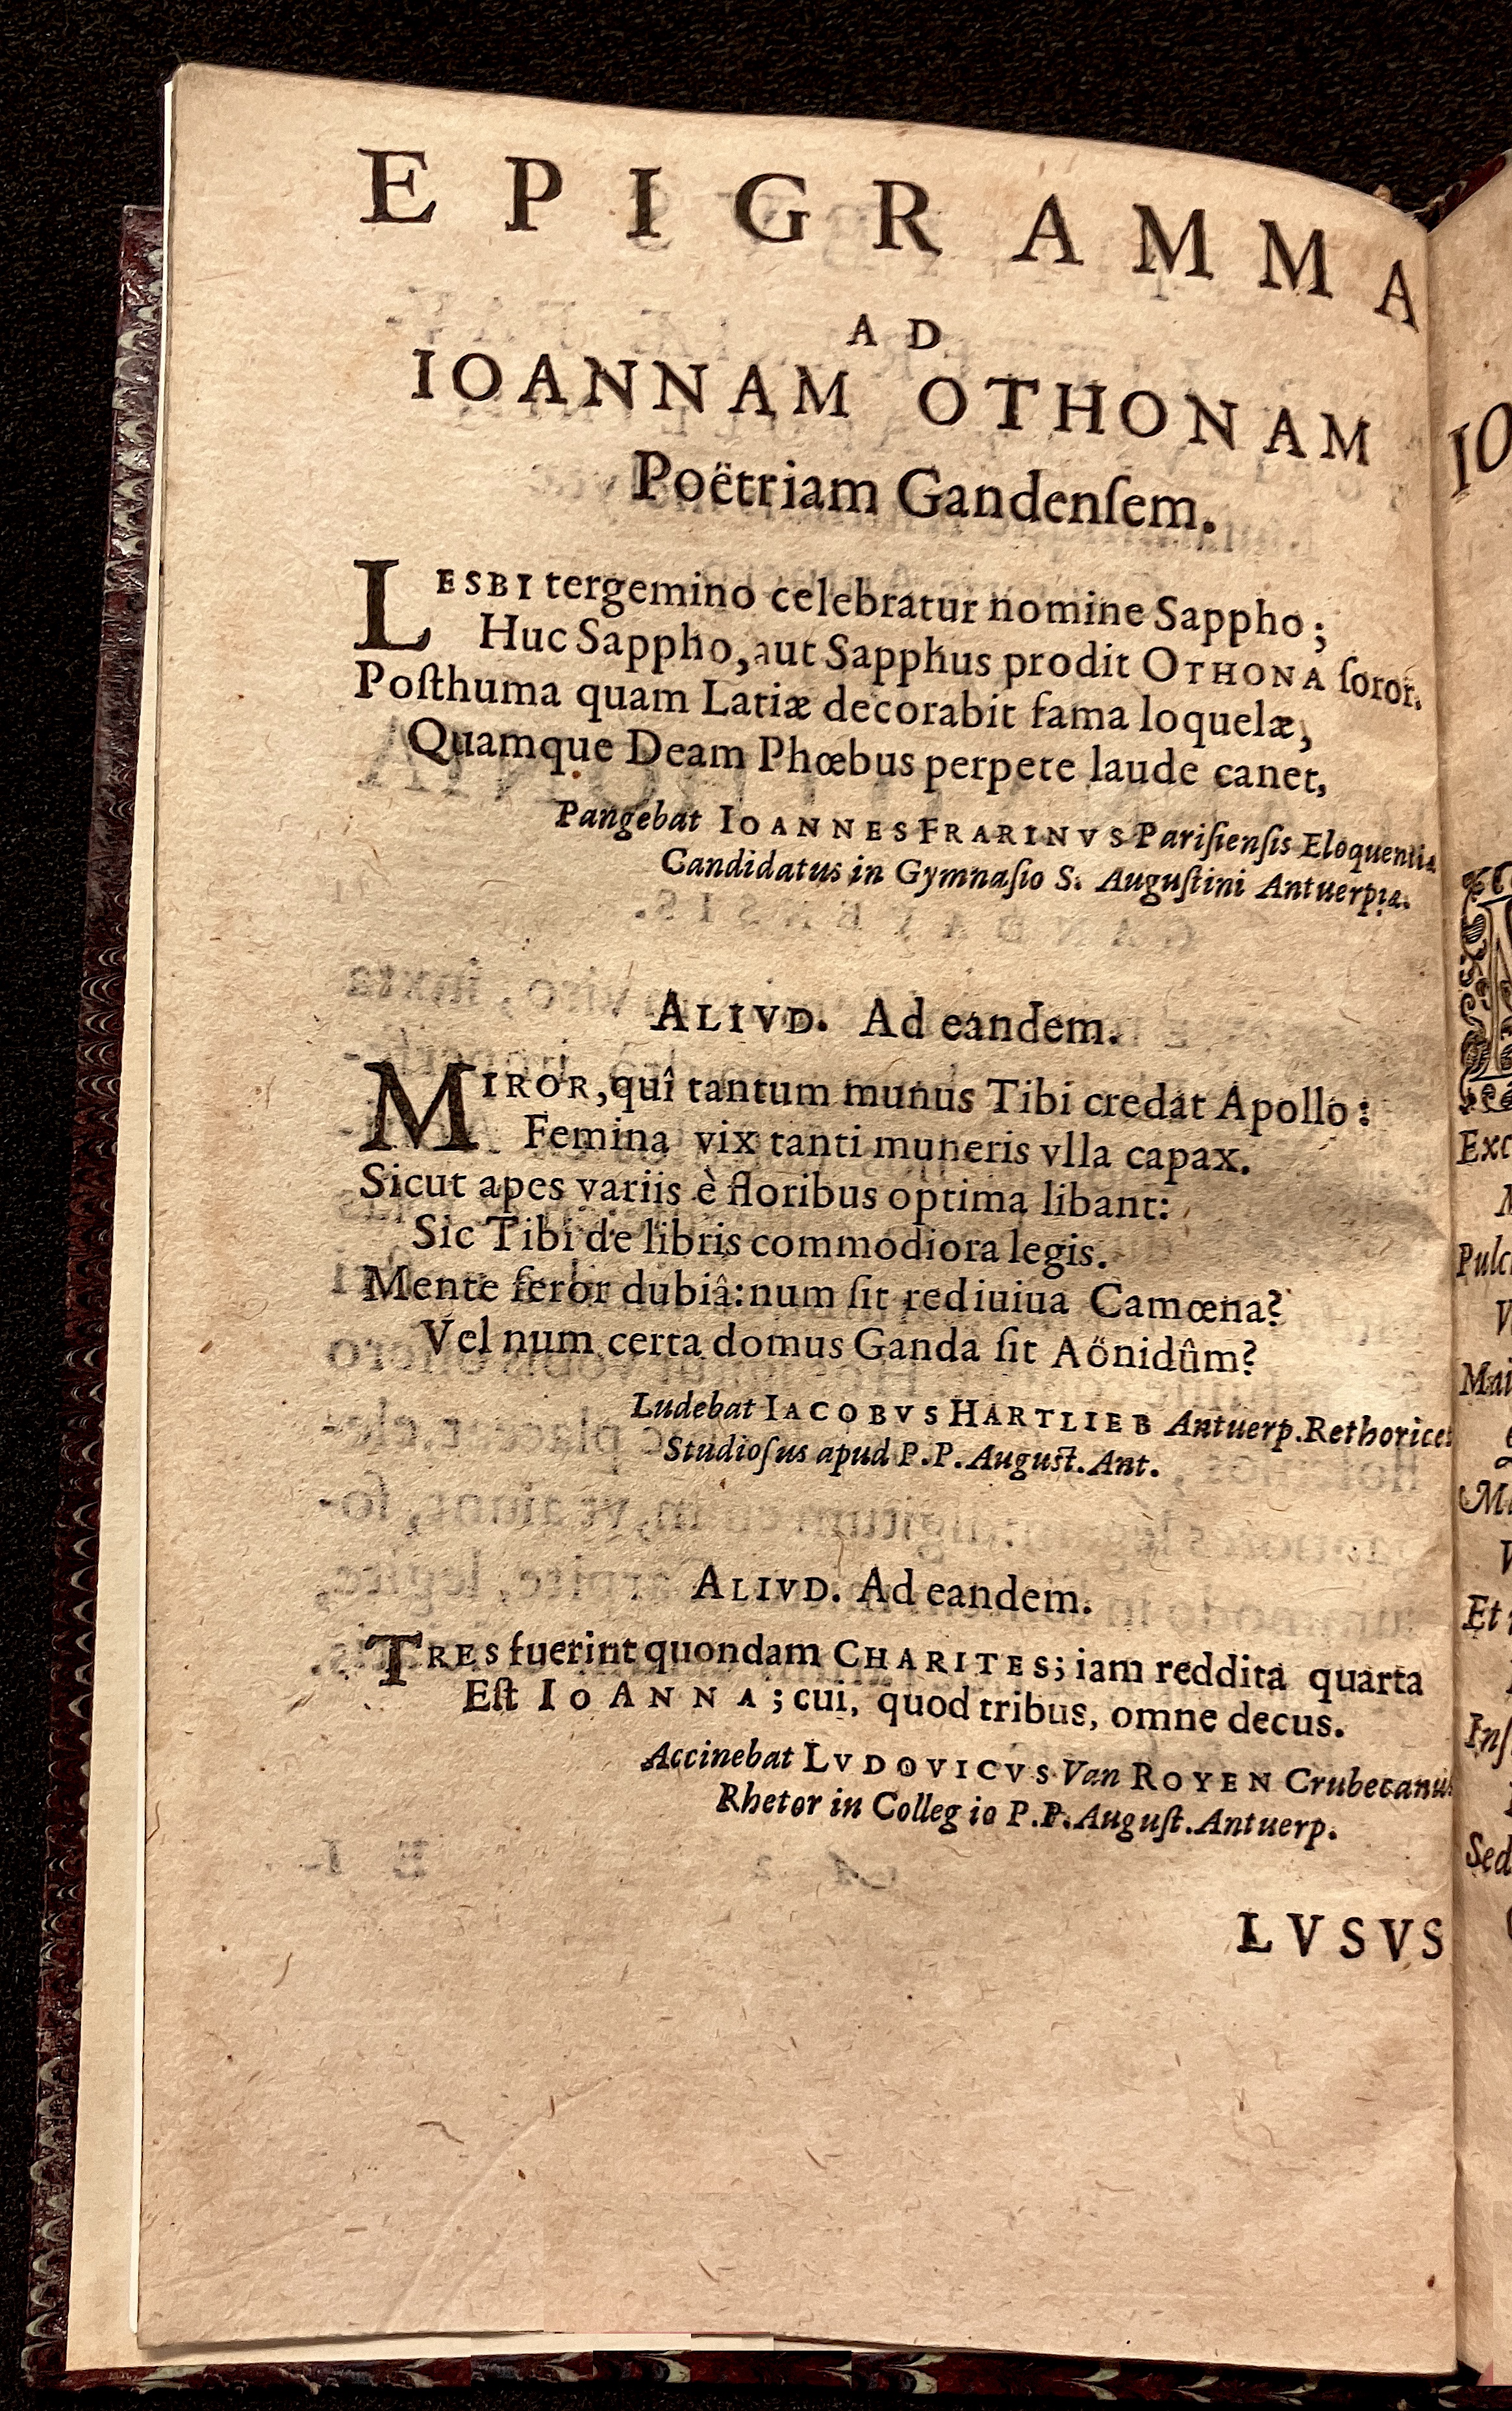 EPIGRAMMA
AD
IOANNAM OTHONAM
Poëtriam Gandenſem.
LESBI tergemino celebratur nomine Sappho;
Huc Sappho, aut Sapphus prodit OTHONA ſoror.
Poſthuma quam Latiæ decorabit fama loquelæ,
Quamque Deam Phœbus perpete laude canet,
Pangebat IOANNES FRARINVS Pariſienſis Eloquentiæ
Candidatus in Gymnaſio S. Auguſtini Antuerpiæ.
ALIVD. Ad eandem.
MIROR, quî tantum munus Tibi credat Apollo:
Femina vix tanti muneris vlla capax.
Sicut apes variis è floribus optima libant:
Sic Tibi de libris commodiora legis.
Mente feror dubiâ: num ſit rediuiua Camœna?
Vel num certa domus Ganda ſit Aönidûm?
Ludebat IACOBVS HARTLIEB Antuerp. Rethorices
Studioſus apud P.P. Auguſt. Ant.
ALIVD. Ad eandem.
TRES fuerint quondam CHARITES; iam reddita quarta
Eſt IOANNA; cui, quod tribus, omne decus.
Accinebat LVDOVICVS Van ROYEN Crubecanus
Rhetor in Collegio P.P. Auguſt. Antuerp.
LVSVS
IO
Exc
Pulc
V
Mai
Et
Inſ
Sed